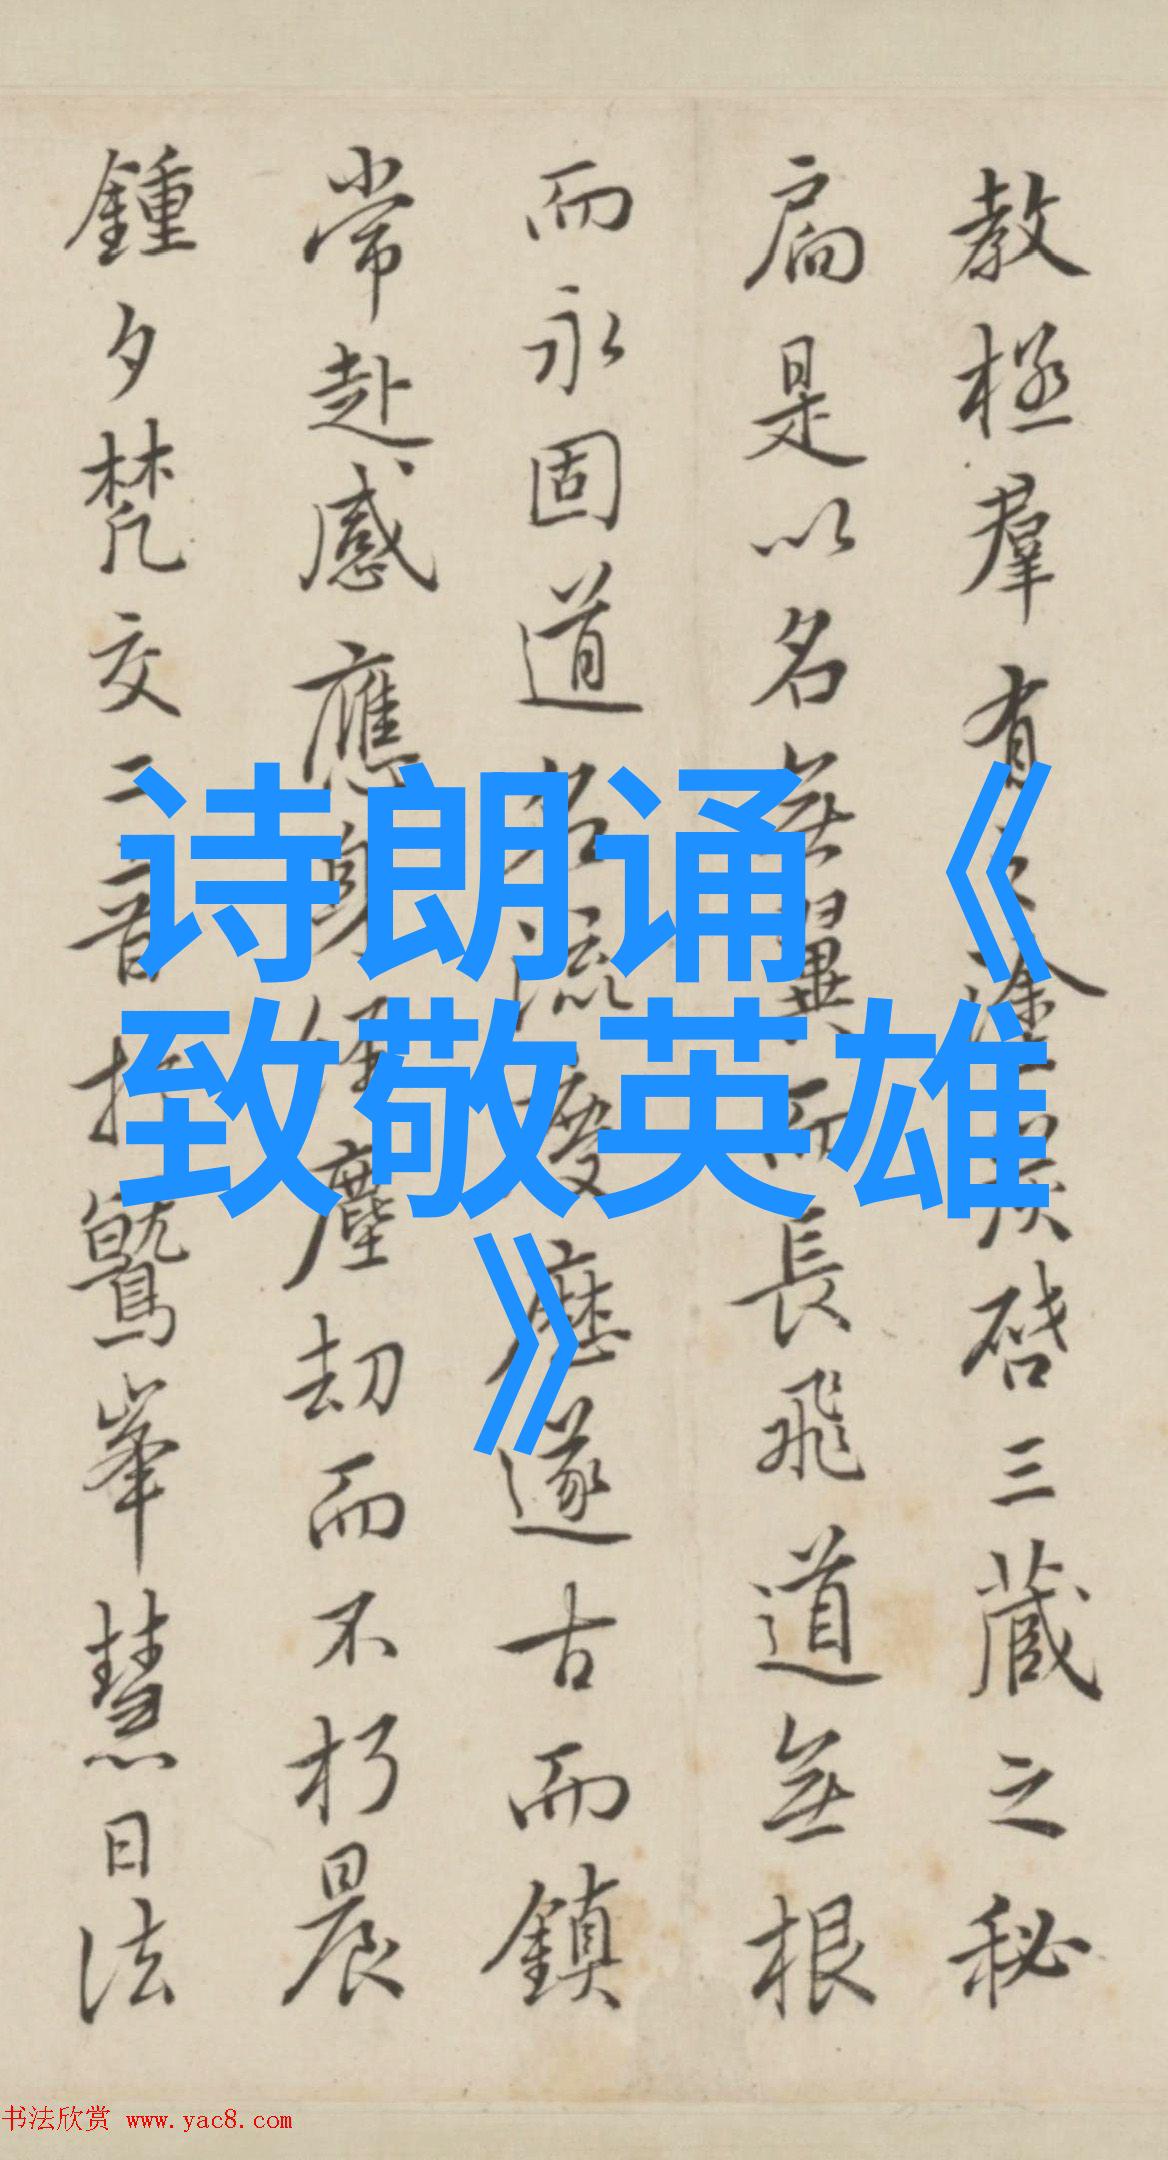 诗朗诵《
致敬英雄
》
教拯羣有之塗炭啓三藏之秘
扃是以名無翼而長飛道無根
而永固道名流慶歷遂古而鎮
常赴感應身經塵劫而不朽晨
鍾夕梵交二音於鷲峯慧日法
书法欣赏 www.yac8.com